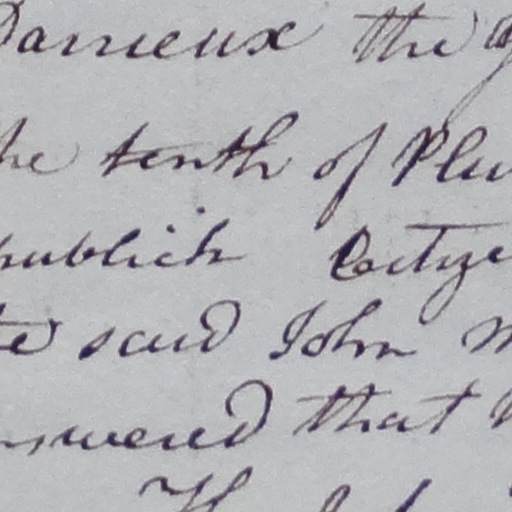 Darrieux the
the tenth of Plu
publick Cartye
said John M
answered that